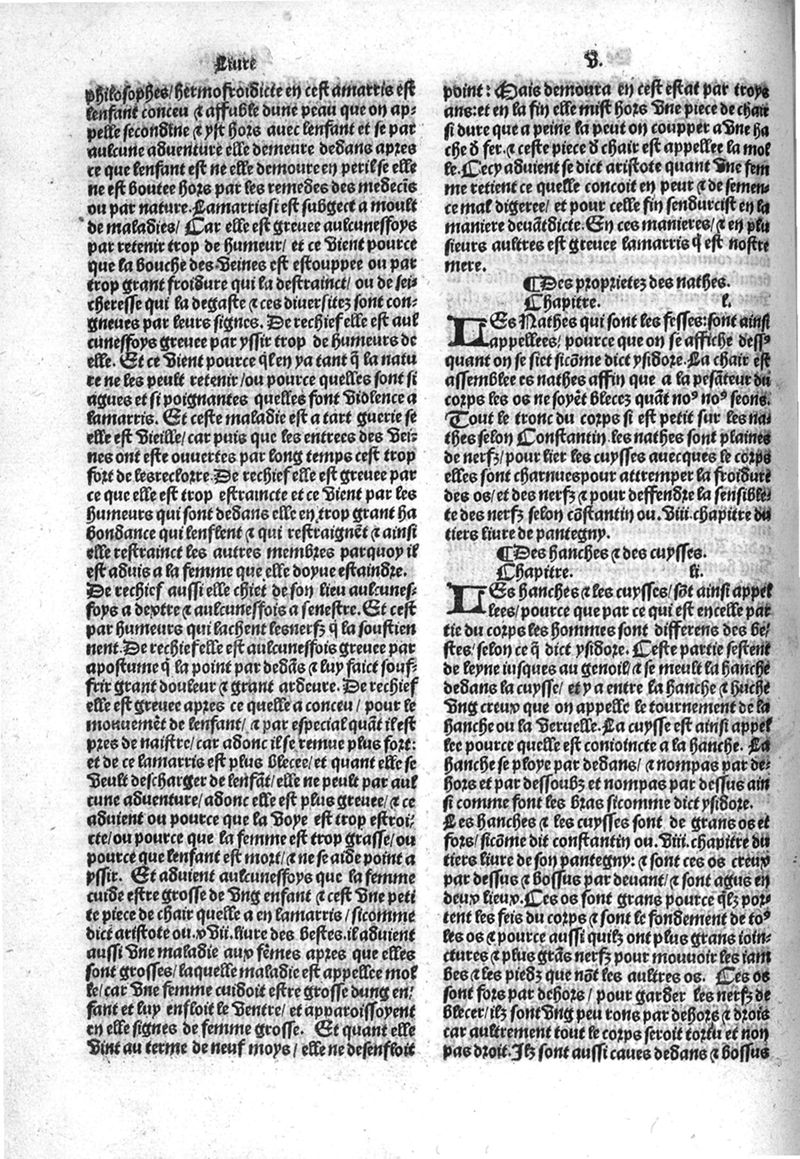 Liure
V.
philosophes/hermofroidicte en cest amarris est
lenfant conceu ⁊ affuble dune peau que on ap-
pelle secondine ⁊ yst hors auec lenfant et se par
aulcune aduenture elle demeure dedans apres
ce que lenfant est ne elle demoure en peril se elle
ne est boutee hors par les remedes des medecis
ou par nature. Lamarris si est subgect a moult
de maladies/ Car elle est greuee aulcunesfoys
par retenir trop de humeur/ et ce vient pource
que la bouche des veines est estouppee ou par
trop grant froidure qui la destrainct/ ou de sei-
cheresse qui la degaste ⁊ ces diuersitez sont con-
gneues par leurs signes. De rechief elle est aul
cunesfoys greuee par yssir trop de humeurs de
elle. Et ce vient pource q̄l en ya tant q̄ la natu
re ne les peult retenir/ou pource quelles sont si
agues et si poignantes quelles font violence a
lamarris. Et ceste maladie est a tart guerie se
elle est vieille/car puis que les entrees des vei-
nes ont este ouuertes par long temps cest trop
fort de les reclorre. De rechief elle est greuee par
ce que elle est trop estraincte et ce vient par les
humeurs qui sont dedans elle en trop grant ha
bondance qui lenflent ⁊ qui restraignēt ⁊ ainsi
elle restrainct les autres membres parquoy il
est aduis a la femme que elle doyue estaindre.
De rechief aussi elle chiet de son lieu aulcunes-
foys a dextre ⁊ aulcunesfois a senestre. Et cest
par humeurs qui lachent les nerfz q̄ la soustien
nent. De rechief elle est aulcunesfois greuee par
apostume q̄ la point par dedās ⁊ luy faict souf-
frir grant douleur ⁊ grant ardeure. De rechief
elle est greuee apres ce quelle a conceu/ pour le
mouuemēt de lenfant/ ⁊ par especial quāt il est
pres de naistre/ car adonc il se remue plus fort:
et de ce lamarris est plus blecee/ et quant elle se
veult descharger de lenfāt/ elle ne peult par aul
cune aduenture/ adonc elle est plus greuee/ ⁊ ce
aduient ou pource que la voye est trop estroi-
cte/ ou pource que la femme est trop grasse/ ou
pource que lenfant est mort/ ⁊ ne se aide point a
yssir. Et aduient aulcunesfoys que la femme
cuide estre grosse de vng enfant ⁊ cest vne peti
te piece de chair quelle a en lamarris/ sicomme
dict aristote ou.xvii.liure des bestes.il aduient
aussi vne maladie aux fēmes apres que elles
sont grosses/ laquelle maladie est appellee mol
le/ car vne femme cuidoit estre grosse dung en-
fant et luy enfloit le ventre/ et apparoissoyent
en elle signes de femme grosse. Et quant elle
vint au terme de neuf moys/ elle ne desenfloit
point: Mais demoura en cest estat par troys
ans:et en la fin elle mist hors vne piece de chair
si dure que a peine la peut on coupper a vne ha
che d̄ fer. ⁊ ceste piece d̄ chair est appellee la mol
le. Cecy aduient se dict aristote quant vne fem
me retient ce quelle concoit en peur ⁊ de semen-
ce mal digeree/ et pour celle fin sendurcist en la
maniere deuātdicte. En ces manieres/ ⁊ en plu
sieurs aultres est greuee lamarris q̄ est nostre
mere.
¶ Des proprietez des nathes.
Chapitre. l.
LEs Nathes qui sont les fesses:sont ainsi
appellees/ pource que on se affiche dessꝰ
quant on se siet sicōme dict ysidore. La chair est
assemblee es nathes affin que a la pesāteur du
corps les os ne soyēt blecez quāt noꝰ noꝰ seons.
Tout le tronc du corps si est petit sur les na-
thes selon Constantin. les nathes sont plaines
de nerfz/ pour lier les cuysses auecques le corps
elles sont charnues pour attremper la froidure
des os/ et des nerfz ⁊ pour deffendre la sensible-
te des nerfz selon cōstantin ou. viii. chapitre du
tiers liure de pantegny.
¶ Des hanches ⁊ des cuysses.
Chapitre. li.
LEs hanches ⁊ les cuysses/ sōt ainsi appel
lees/ pource que par ce qui est en celle par
tie du corps les hommes sont differens des be-
stes/ selon ce q̄ dict ysidore. Ceste partie sestent
de leyne iusques au genoil/ ⁊ se meult la hanche
dedans la cuysse/ et y a entre la hanche ⁊ huche
vng creux que on appelle le tournement de la
hanche ou la veruelle. La cuysse est ainsi appel
lee pource quelle est conioincte a la hanche. La
hanche se ploye par dedans/ ⁊ nompas par de-
hors et par dessoubz et nompas par dessus ain
si comme font les bras sicomme dict ysidore.
Les hanches ⁊ les cuysses sont de grans os et
fors/ sicōme dit constantin ou. viii. chapitre du
tiers liure de son pantegny: ⁊ sont ces os creux
par dessus ⁊ bossus par deuant/ ⁊ sont agus en
deux lieux. Ces os sont grans pource q̄lz por-
tent les feis du corps ⁊ sont le fondement de toꝰ
les os ⁊ pource aussi quilz ont plus grans ioin-
ctures ⁊ plus grās nerfz pour mouuoir les iam
bes ⁊ les piedz que nōt les aultres os. Ces os
sont fors par dehors/ pour garder les nerfz de
blecer/ ilz sont vng peu rons par dehors ⁊ drois
car aultrement tout le corps seroit tortu et non
pas droit. Ilz sont aussi caues dedans ⁊ bossus